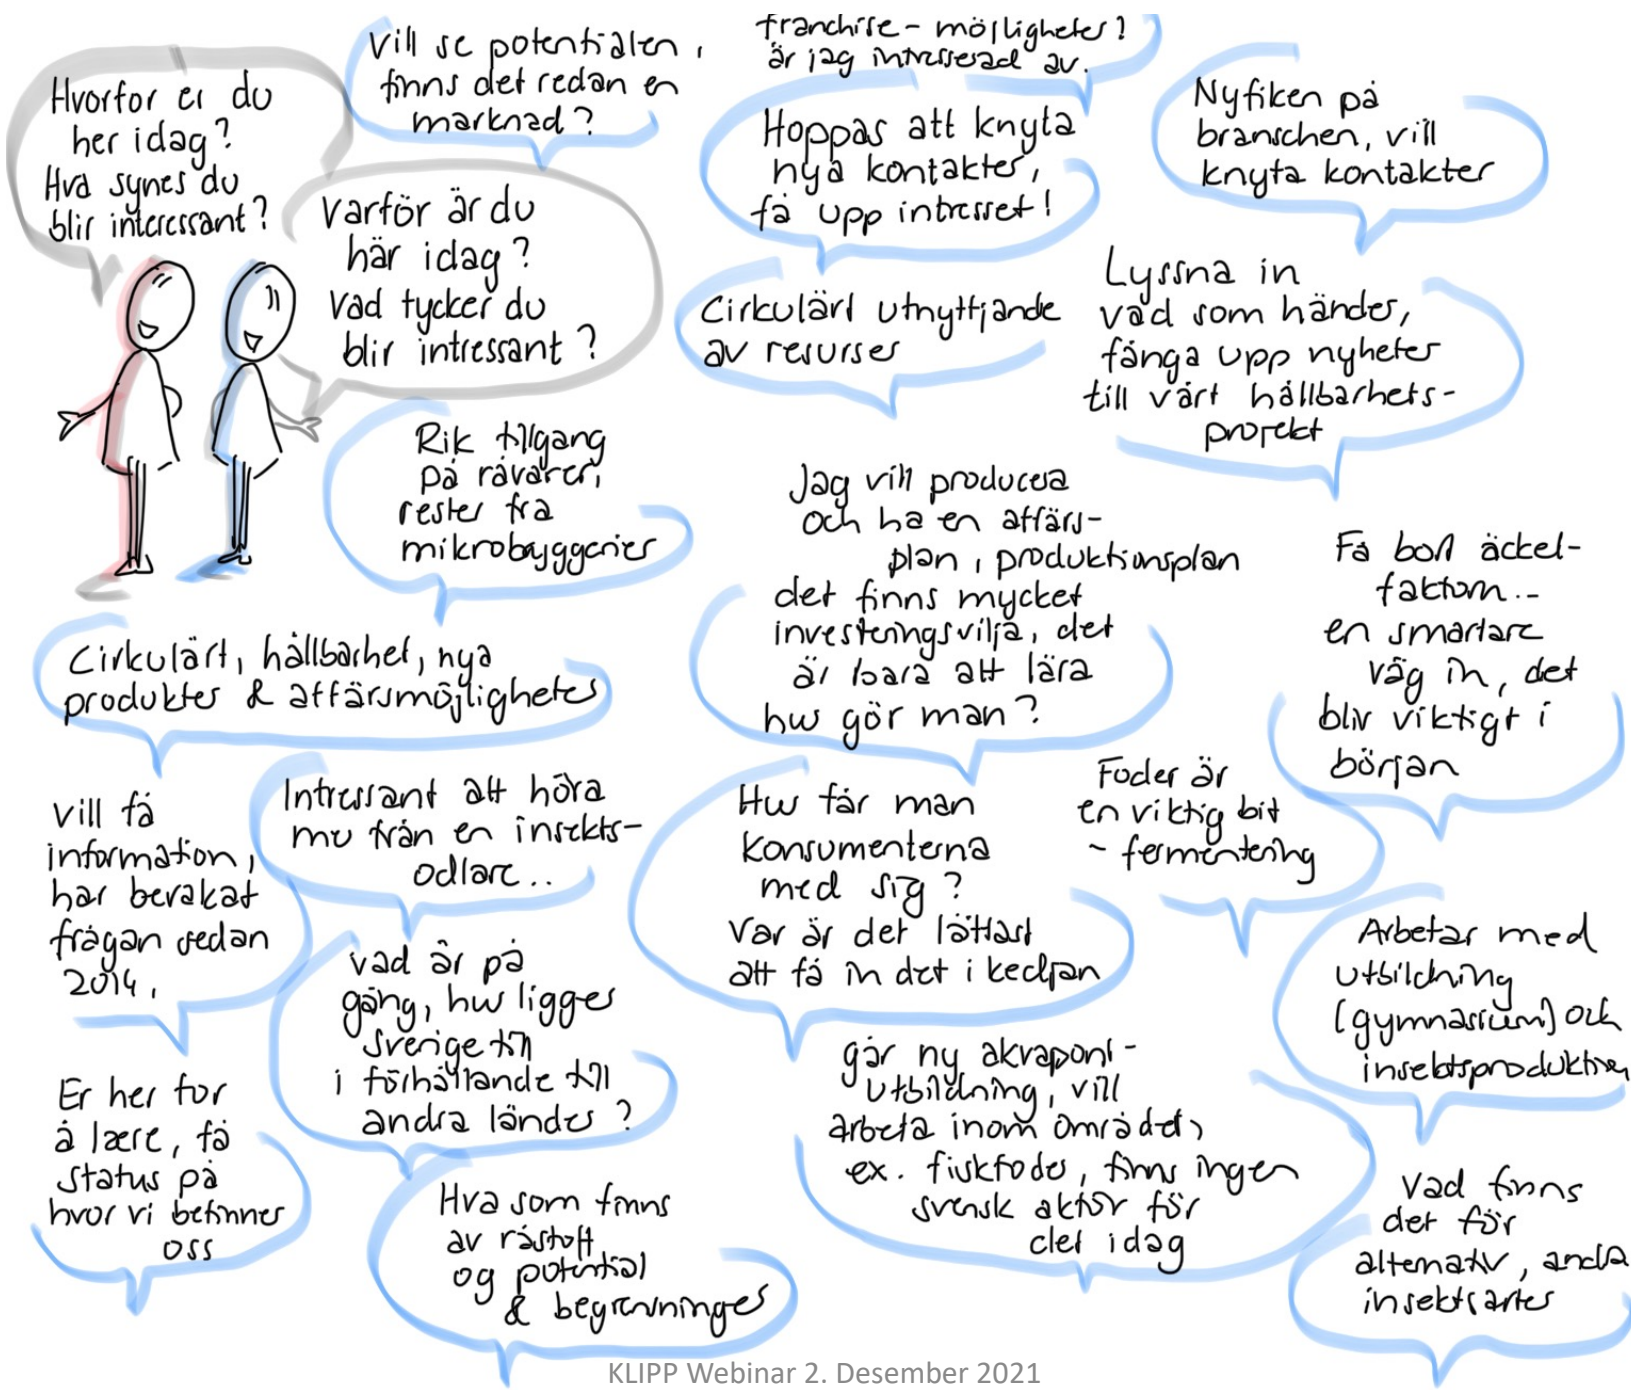 Hvorfor er du
her idag?
Hva synes du
blir interessant?
Varför är du
här idag?
Vad tycker du
blir intressant?
Vill se potentialen,
finns det redan en
marknad?
franchise-möjligheter?
är jag intresserad av.
Hoppas att knyta
nya kontakter,
få upp intresset!
Nyfiken på
branschen, vill
knyta kontakter
Cirkulärt utnyttjande
av resurser
Lyssna in
vad som händer,
fånga upp nyheter
till vårt hållbarhets-
projekt
Rik tilgang
på råvarer,
rester fra
mikrobryggerier
Jag vill producera
och ha en affärs-
plan, produktionsplan
det finns mycket
investeringsvilja, det
är bara att lära
hur gör man?
Få bort äckel-
faktorn..
en smartare
väg in, det
blir viktigt i
början
Cirkulärt, hållbarhet, nya
produkter & affärsmöjligheter
Vill få
information,
har bevakat
frågan sedan
2014,
Intressant att höra
mer från en insekts-
odlare..
Hur får man
konsumenterna
med sig?
Var är det lättast
att få in det i kedjan
Foder är
en viktig bit
- fermentering
Arbetar med
utbildning
(gymnasium) och
insektsproduktion
Vad är på
gång, hur ligger
Sverige till
i förhållande till
andra länder?
Er her for
å lære, få
status på
hvor vi befinner
oss
Hva som finns
av råstoff
og potential
& begrensninger
går ny akvaponi-
utbildning, vill
arbeta inom området,
ex. fiskfoder, finns ingen
svensk aktör för
det idag
Vad finns
det för
alternativ, andra
insektsarter
KLIPP Webinar 2. Desember 2021